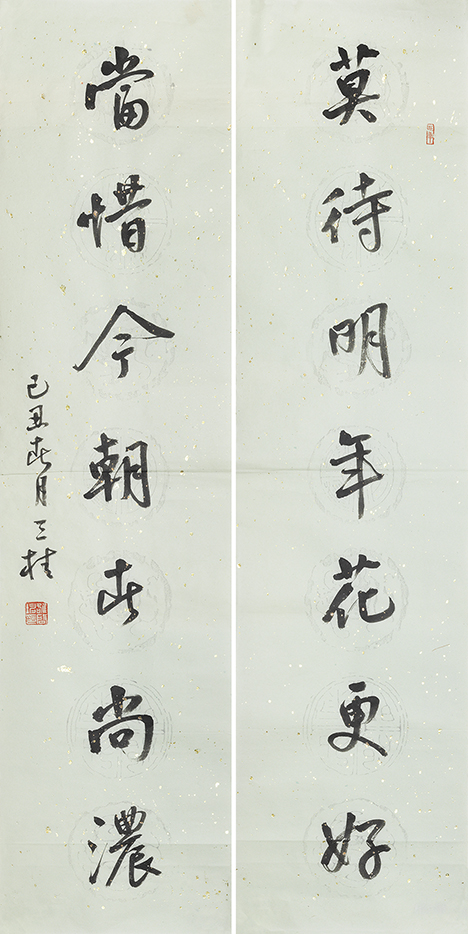 莫待明年花更好
當惜今朝春尚濃
己丑春月 桂